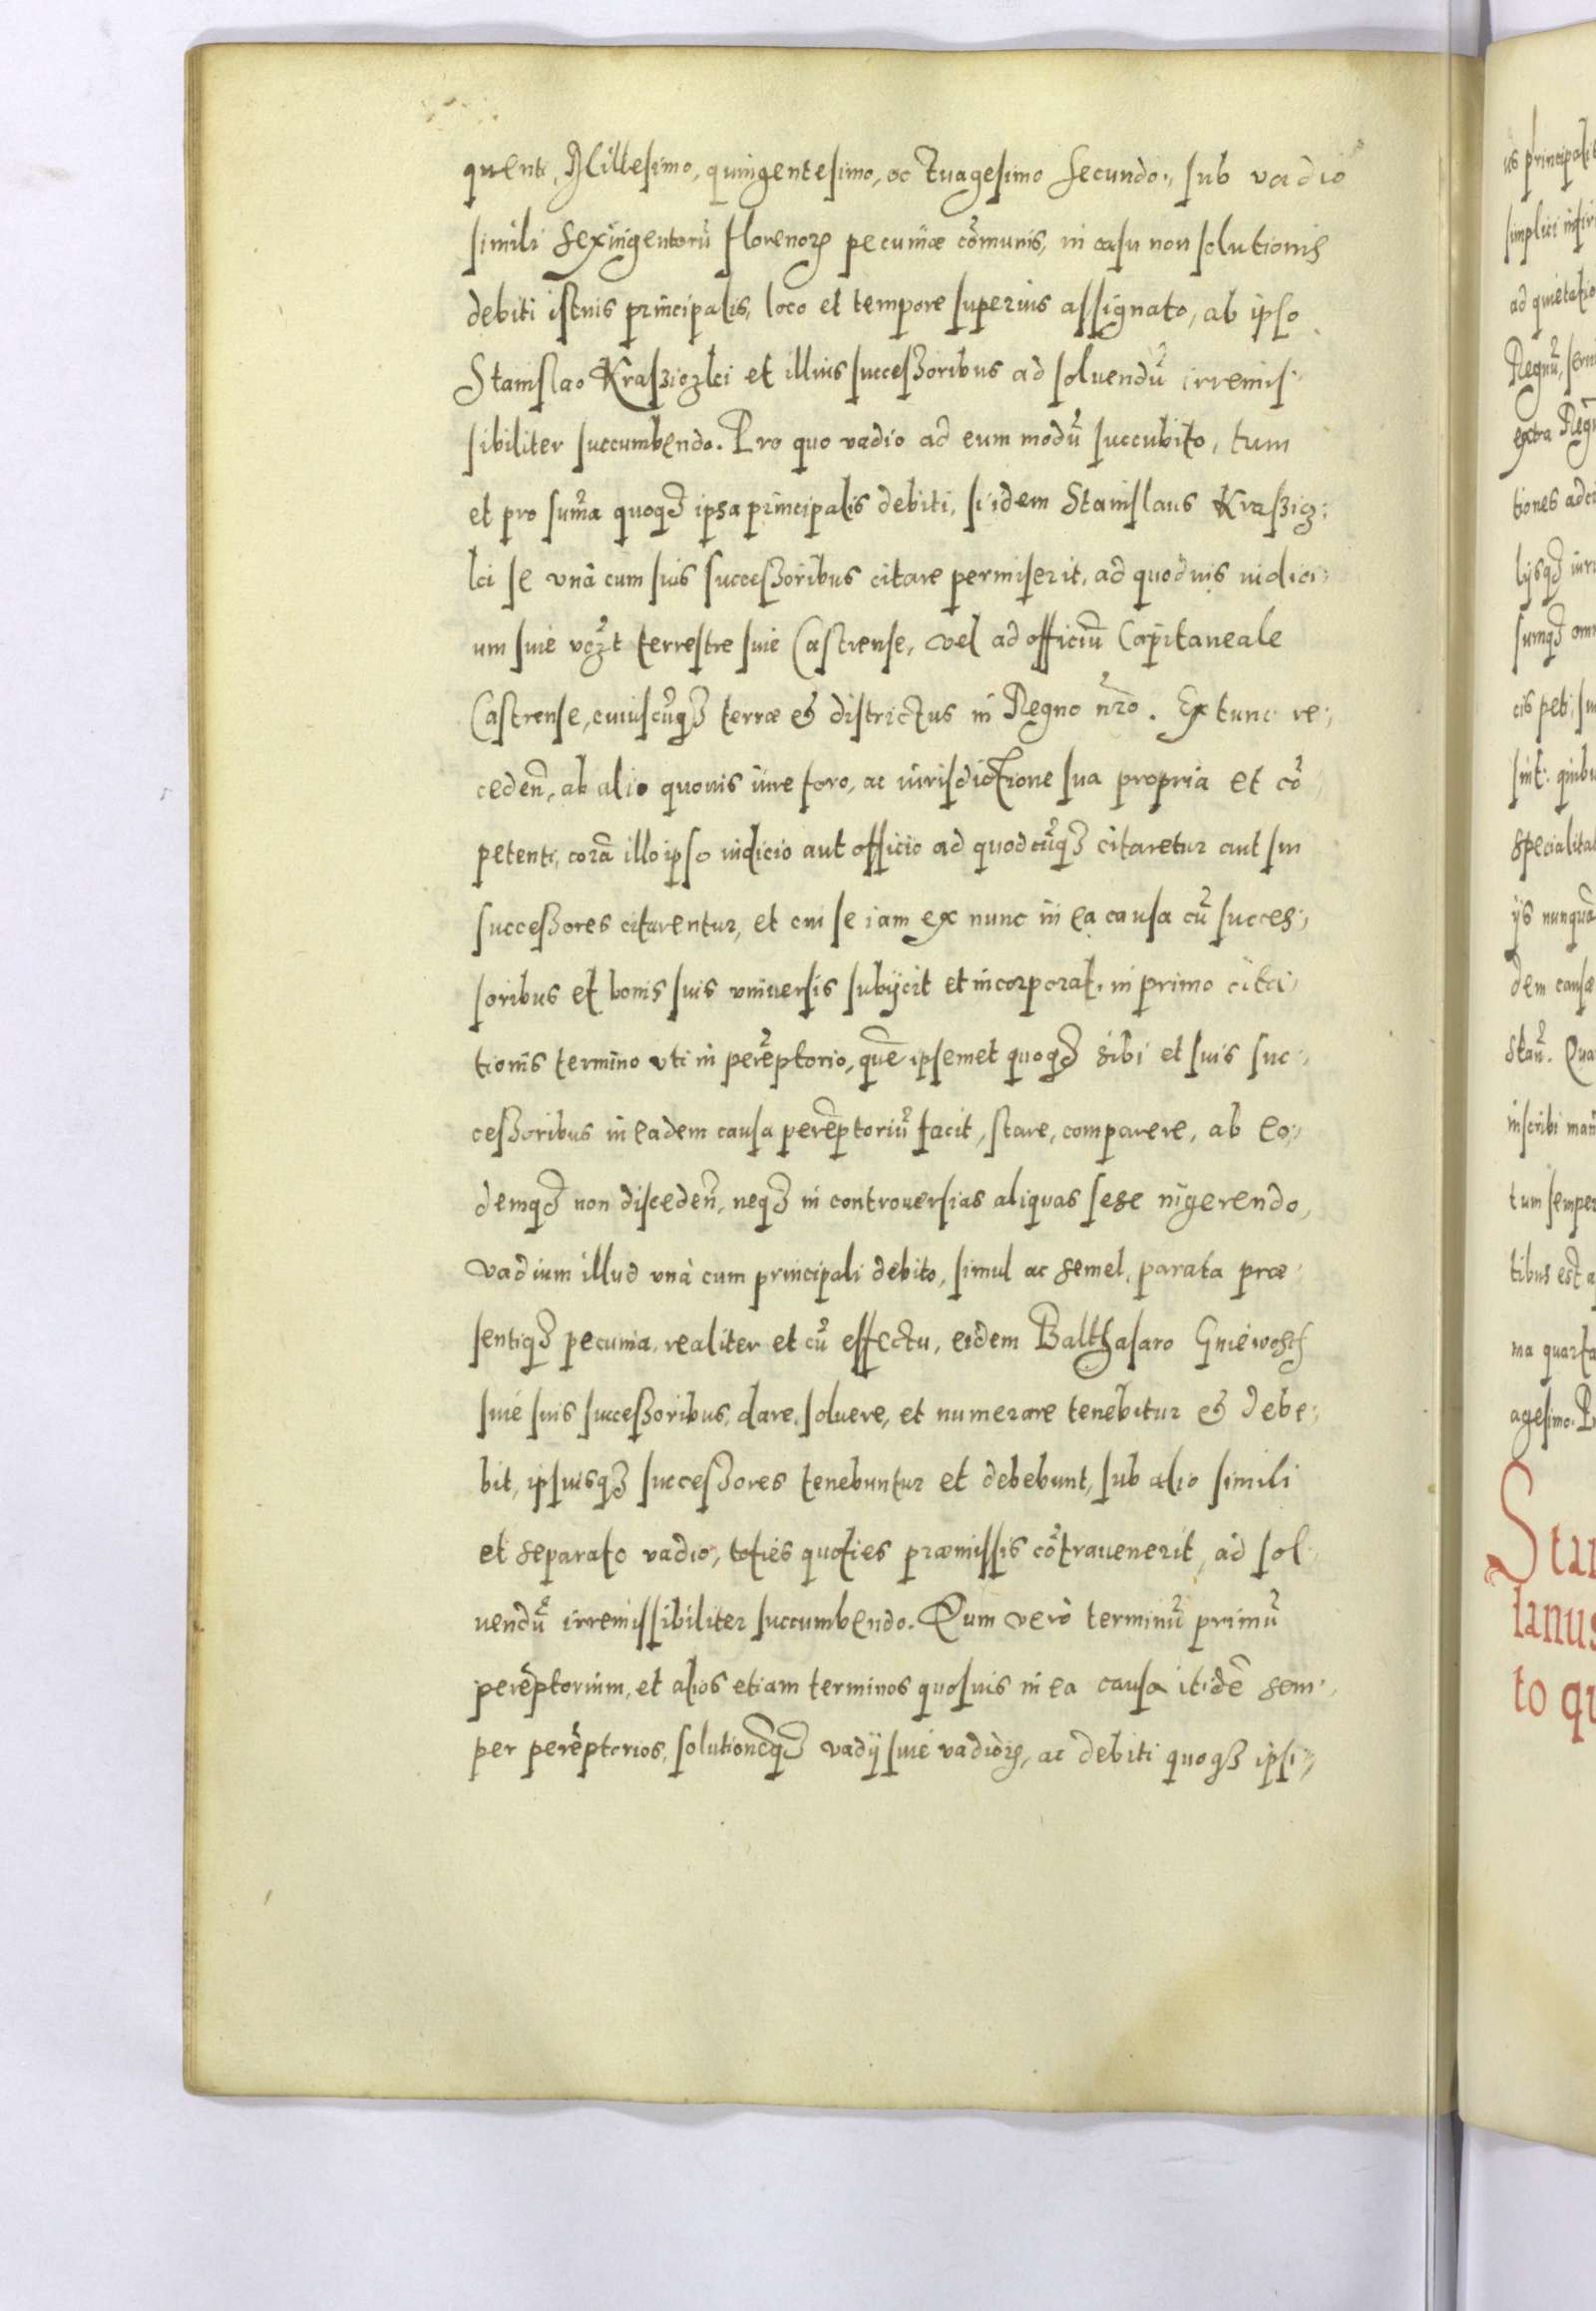 quenti, Millesimo, quingentesimo, octuagesimo secundo, sub vadio
simili sexingentorũ florenoꝝ pecuniæ cõmunis, in casu non solutionis
debiti istius principalis, loco et tempore superius assignato, ab ipso
Stanislao et illius successoribus ad soluendũ irremis:
sibiliter succumbendo. Pro quo vadio ad eum modũ succubito, tum
et pro sum̃a quoqꝫ ipsa principalis debiti, si idem Stanislaus
lci se vnà cum suis successoribus citare permiserit, ad quoduis iudici:
um siue terrestre siue Castrense, vel ad officiũ Capitaneale
Castrense, cuiuscũqꝫ terræ & districtus in Regno nr̃o. Extunc re:
ceden̄, ab alio quouis iure foro, ac iurisdictione sua propria et cõ
petenti, corã illo ipso iudicio aut officio ad quodcũqꝫ citaretur aut sui
successores citarentur, et cui se iam ex nunc in ea causa cũ succes:
soribus et bonis suis vniuersis subijcit et incorporat, in primo cita:
tionis termino vti in perẽptorio, quẽ ipsemet quoqꝫ sibi et suis suc:
cessoribus in eadem causa perẽptoriũ facit, stare, comparere, ab eo:
demqꝫ non disceden̄, neqꝫ in controuersias aliquas sese ingerendo,
vadium illud vnà cum principali debito, simul ac semel, parata præ:
sentiqꝫ pecunia, realiter et cũ effectu, eidem Balthasaro Gniewosch
siue suis successoribus, dare, soluere, et numerare tenebitur & debe:
bit, ipsiusqꝫ successores tenebuntur et debebunt, sub alio simili
et separato vadio, toties quoties præmissis cõtrauenerit, ad sol:
uendũ irremissibiliter succumbendo. Qum verò terminũ primũ
perẽptorium, et alios etiam terminos quosuis in ea causa itidẽ sem:
per perẽptorios, solutionẽqꝫ vadij siue vadioꝝ, ac debiti quoqꝫ ipsi:
us principali
simplici
ad quietatio
Regnũ,
extra Regn
tiones
lijsqꝫ
sumqꝫ om
cis peti,
sint: quibu
specialitat
ijs nunquã
dem causæ
Qua
inscribi man
tum semper
tibus est a
ma quarta
agesimo.
Stan
lanus
to qu